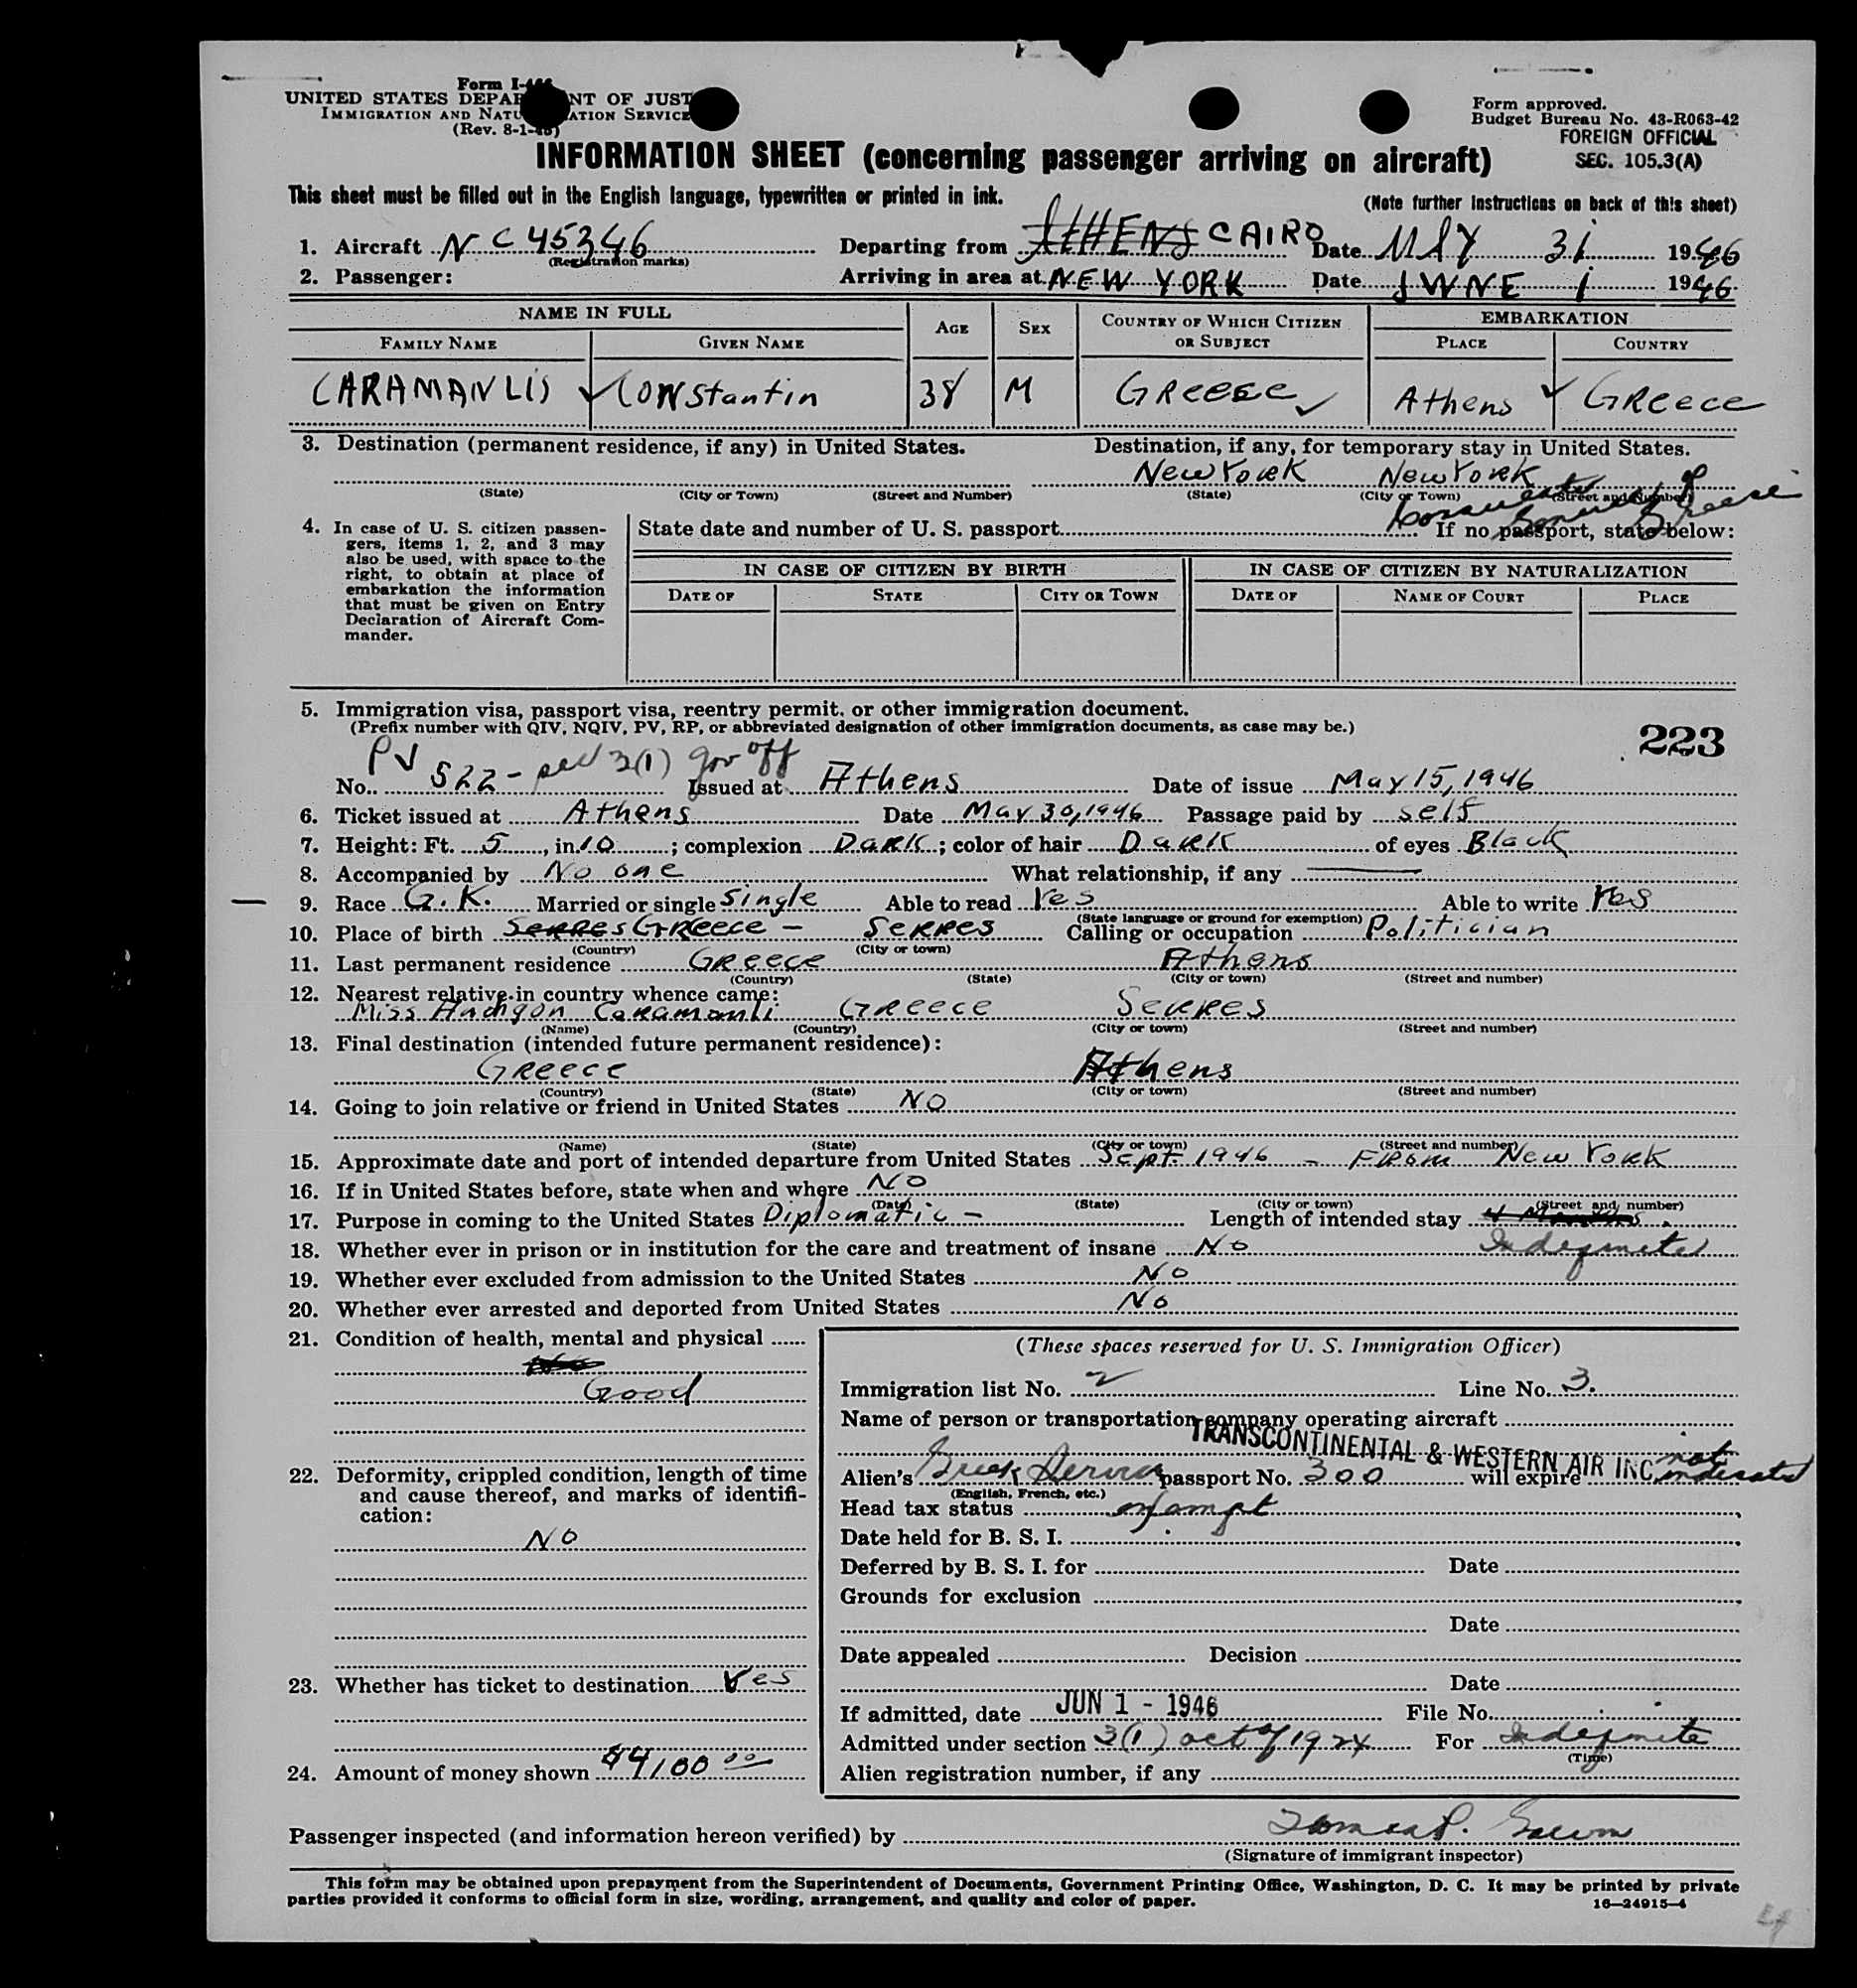 Form I-466
UNITED STATES DEPARTMENT OF JUSTICE
IMMIGRATION AND NATURALIZATION SERVICE
(Rev. 8-1-45)
Form approved.
Budget Bureau No. 43-R063-42
FOREIGN OFFICIAL
SEC. 105.3(A)
INFORMATION SHEET (concerning passenger arriving on aircraft)
This sheet must be filled out in the English language, typewritten or printed in ink. (Note further instructions on back of this sheet)
1. Aircraft NC 45346 Departing from ATHENS CAIRO Date MAY 31 1946
(Registration marks)
2. Passenger: Arriving in area at NEW YORK Date JUNE 1 1946
NAME IN FULL AGE SEX COUNTRY OF WHICH CITIZEN OR SUBJECT EMBARKATION
FAMILY NAME GIVEN NAME PLACE COUNTRY
CARAMANLIS Constantin 38 M GREECE Athens GREECE
3. Destination (permanent residence, if any) in United States. Destination, if any, for temporary stay in United States.
New York New York
(State) (City or Town) (Street and Number) (State) (City or Town) (Street and Number)
Consulate General of Greece
4. In case of U. S. citizen passengers, items 1, 2, and 3 may also be used, with space to the right, to obtain at place of embarkation the information that must be given on Entry Declaration of Aircraft Commander.
State date and number of U. S. passport If no passport, state below:
IN CASE OF CITIZEN BY BIRTH IN CASE OF CITIZEN BY NATURALIZATION
DATE OF STATE CITY OR TOWN DATE OF NAME OF COURT PLACE
5. Immigration visa, passport visa, reentry permit, or other immigration document.
(Prefix number with QIV, NQIV, PV, RP, or abbreviated designation of other immigration documents, as case may be.)
223
No. PV 522 - sec 3(1) gov off Issued at Athens Date of issue May 15, 1946
6. Ticket issued at Athens Date May 30, 1946 Passage paid by self
7. Height: Ft. 5, in. 10; complexion Dark; color of hair Dark of eyes Black
8. Accompanied by No one What relationship, if any
9. Race G.K. Married or single single Able to read Yes Able to write Yes
(State language or ground for exemption)
10. Place of birth Serres Greece - Serres Calling or occupation Politician
(Country) (City or town)
11. Last permanent residence Greece Athens
(Country) (State) (City or town) (Street and number)
12. Nearest relative in country whence came:
Miss Caramanli Greece Serres
(Name) (Country) (City or town) (Street and number)
13. Final destination (intended future permanent residence):
Greece Athens
(Country) (State) (City or town) (Street and number)
14. Going to join relative or friend in United States NO
(Name) (State) (City or town) (Street and number)
15. Approximate date and port of intended departure from United States Sept. 1946 - From New York
16. If in United States before, state when and where NO
(Date) (State) (City or town) (Street and number)
17. Purpose in coming to the United States Diplomatic - Length of intended stay
18. Whether ever in prison or in institution for the care and treatment of insane No Indefinite
19. Whether ever excluded from admission to the United States No
20. Whether ever arrested and deported from United States No
21. Condition of health, mental and physical
Good
22. Deformity, crippled condition, length of time and cause thereof, and marks of identification:
NO
23. Whether has ticket to destination Yes
24. Amount of money shown $4100 00
(These spaces reserved for U. S. Immigration Officer)
Immigration list No. 2 Line No. 3.
Name of person or transportation company operating aircraft
TRANSCONTINENTAL & WESTERN AIR INC.
Alien's Greek Service passport No. 300 will expire not indicated
(English, French, etc.)
Head tax status exempt
Date held for B. S. I.
Deferred by B. S. I. for Date
Grounds for exclusion
Date
Date appealed Decision
Date
If admitted, date JUN 1 - 1946 File No.
Admitted under section 3(1) act of 1924 For Indefinite
(Time)
Alien registration number, if any
Passenger inspected (and information hereon verified) by
(Signature of immigrant inspector)
This form may be obtained upon prepayment from the Superintendent of Documents, Government Printing Office, Washington, D. C. It may be printed by private
parties provided it conforms to official form in size, wording, arrangement, and quality and color of paper. 16—24915-4